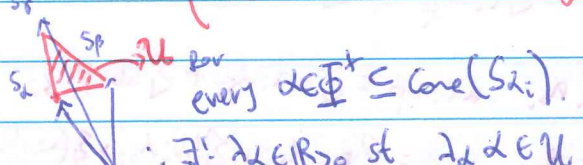 S_γ
S_β U for
S_α every α∈Φ⁺ ⊆ Cone(Sα_i).
∴ ∃! λ_α∈ℝ_{>0} st λ_α α ∈ U